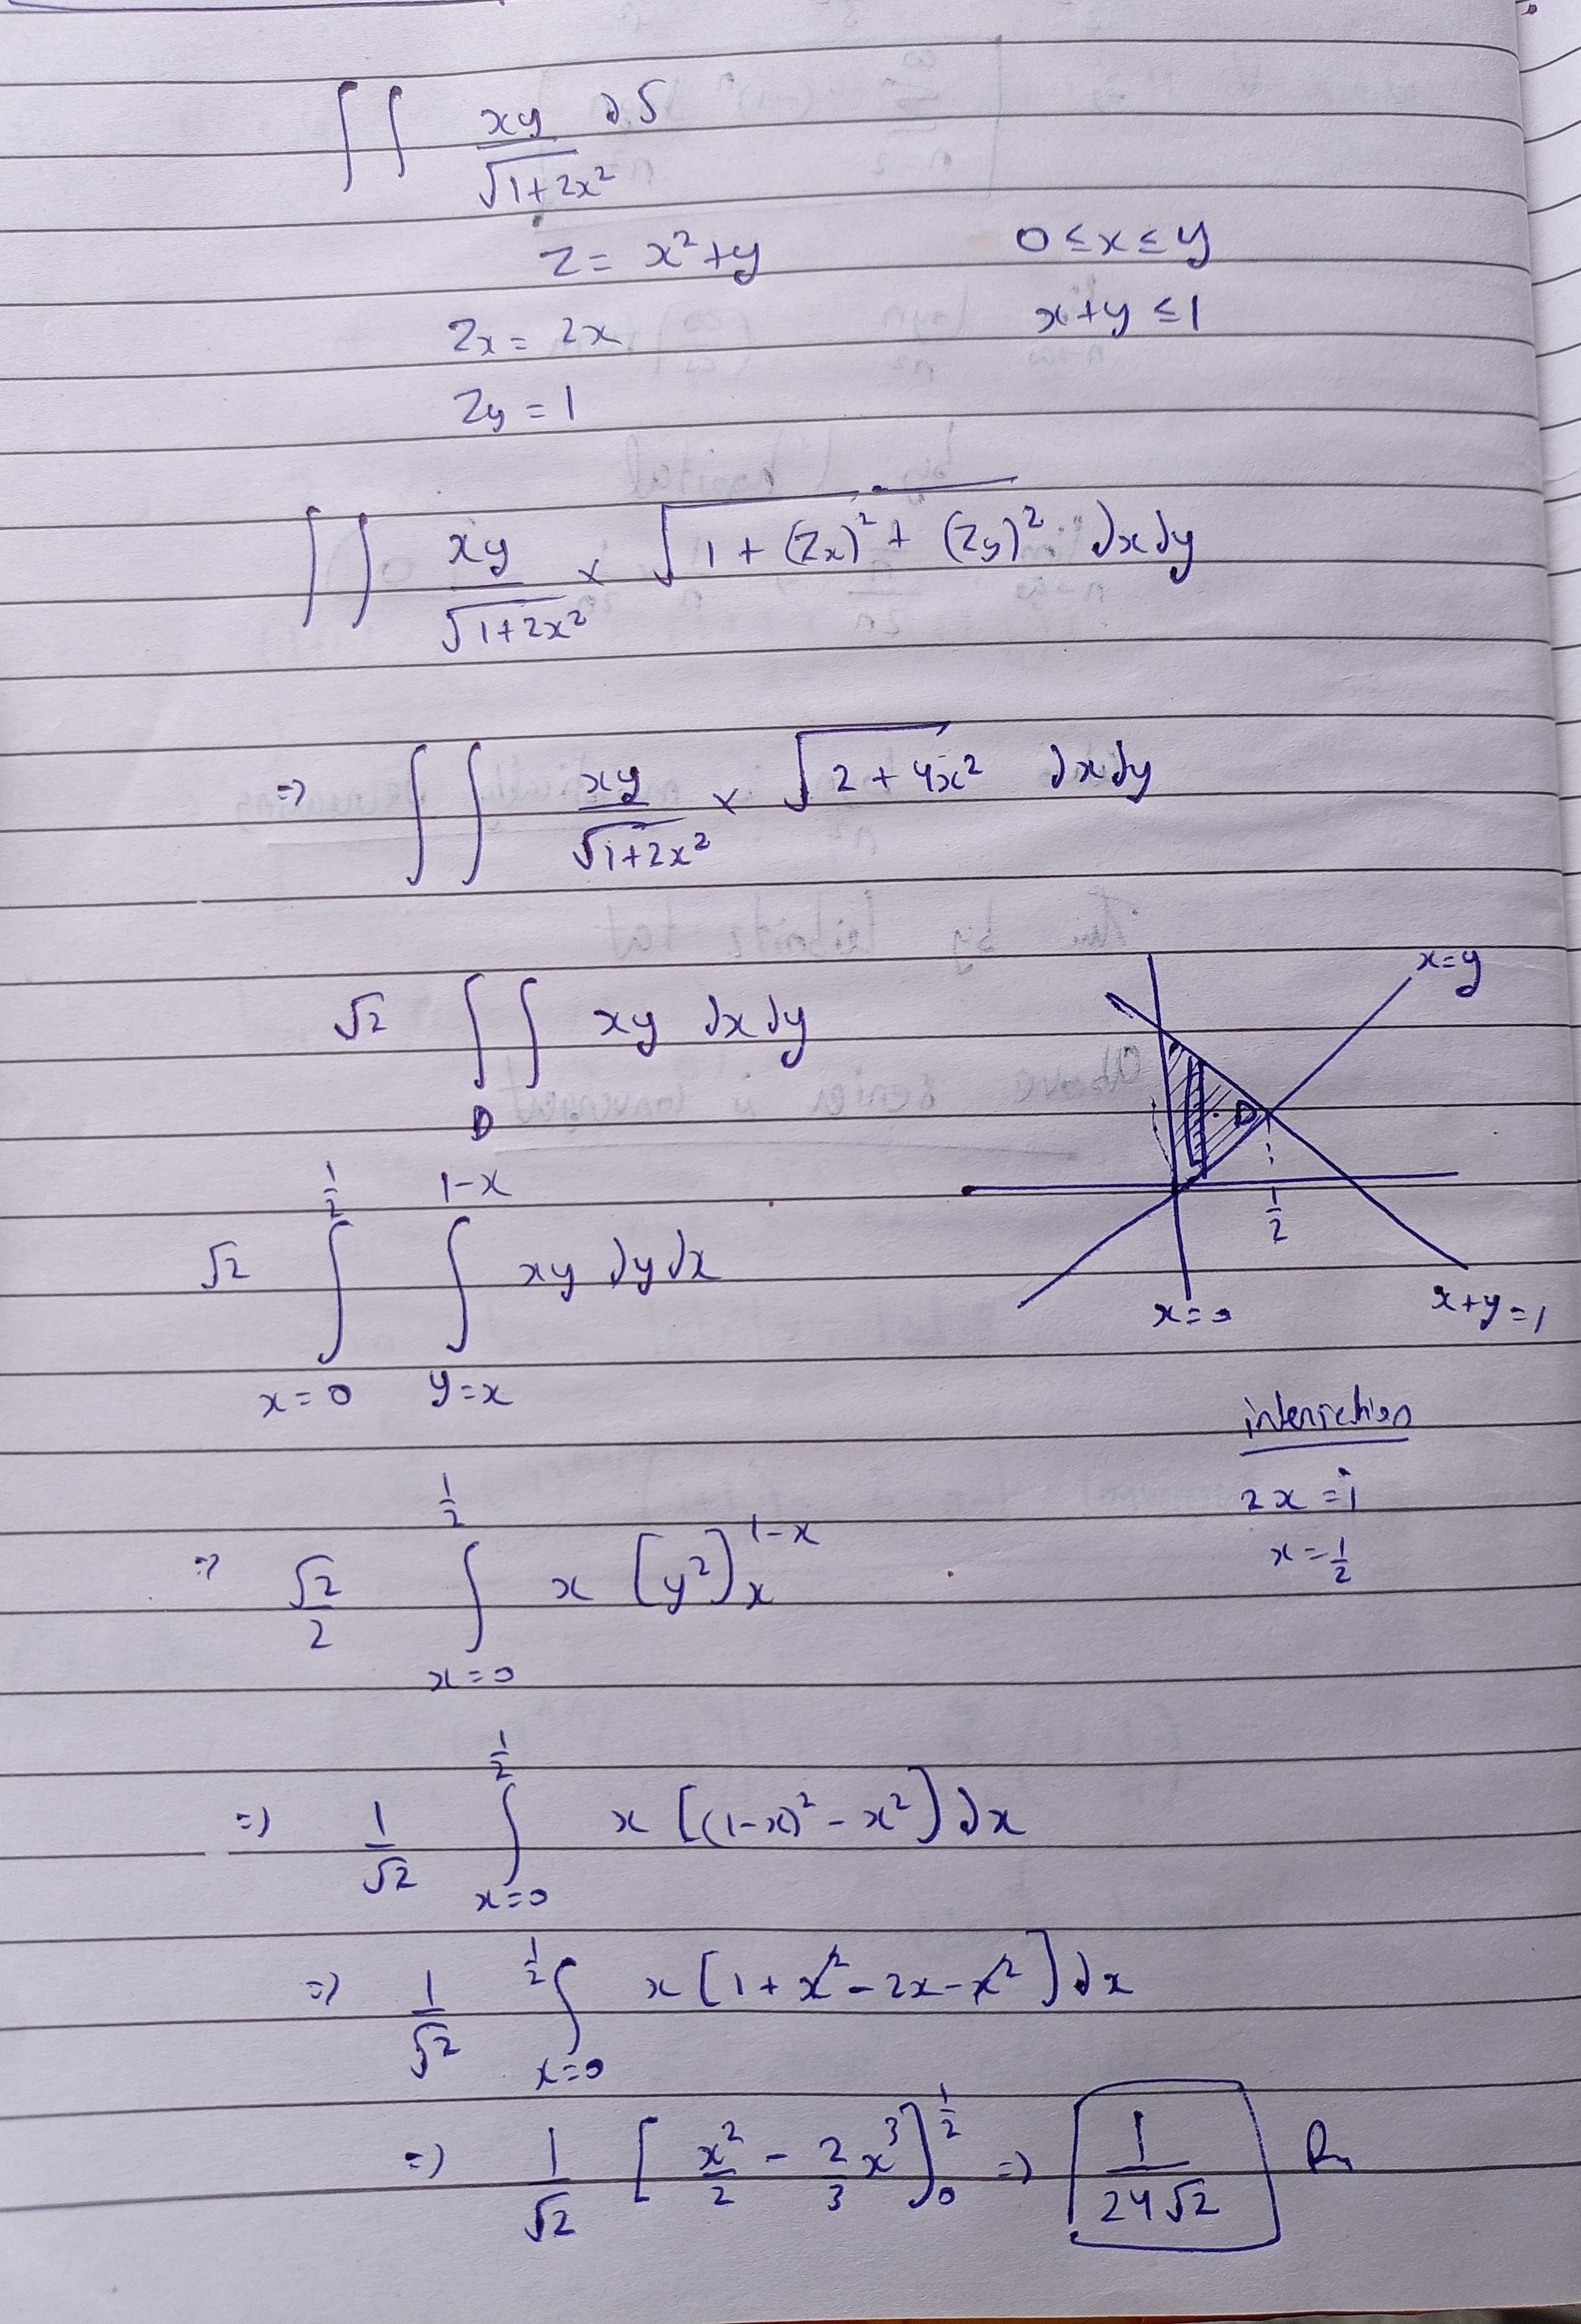 ∫∫ xy/√(1+2x²) dS
z = x²+y 0 ≤ x ≤ y
zx = 2x x+y ≤ 1
zy = 1
∫∫ xy/√(1+2x²) × √(1 + (zx)² + (zy)²) dxdy
=> ∫∫ xy/√(1+2x²) × √(2 + 4x²) dxdy
x=y
√2 ∫∫_D xy dxdy
D
1/2
√2 ∫_{x=0}^{1/2} ∫_{y=x}^{1-x} xy dydx
x=0 x+y=1
intersection
2x = 1
x = 1/2
=> √2/2 ∫_{x=0}^{1/2} x [y²]_x^{1-x}
=> 1/√2 ∫_{x=0}^{1/2} x [(1-x)² - x²] dx
=> 1/√2 ∫_{x=0}^{1/2} x [1 + x² - 2x - x²] dx
=> 1/√2 [x²/2 - 2/3 x³]_0^{1/2} => 1/(24√2)